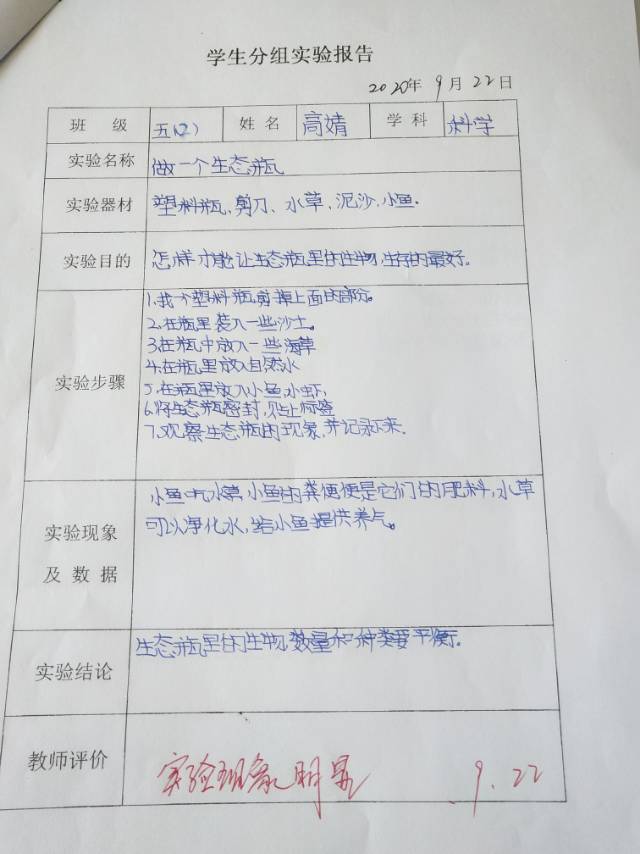 学生分组实验报告
2020年 9月 22日
班 级 五(2) 姓 名 高婧 学 科 科学
实验名称 做一个生态瓶
实验器材 塑料瓶、剪刀、水草、泥沙、小鱼.
实验目的 怎样才能让生态瓶里的生物生存的最好.
实验步骤
1.找个塑料瓶剪掉上面的部分。
2.在瓶里装入一些沙土。
3.在瓶中放入一些海草
4.在瓶里放入自然水
5.在瓶里放入小鱼,小虾,
6.将生态瓶密封,贴上标签
7.观察生态瓶的现象,并记录下来.
实验现象
及 数 据
小鱼吃水草,小鱼的粪便便是它们的肥料,水草
可以净化水,给小鱼提供养气。
实验结论 生态瓶里的生物数量和种类要平衡.
教师评价 实验现象明显 9.22